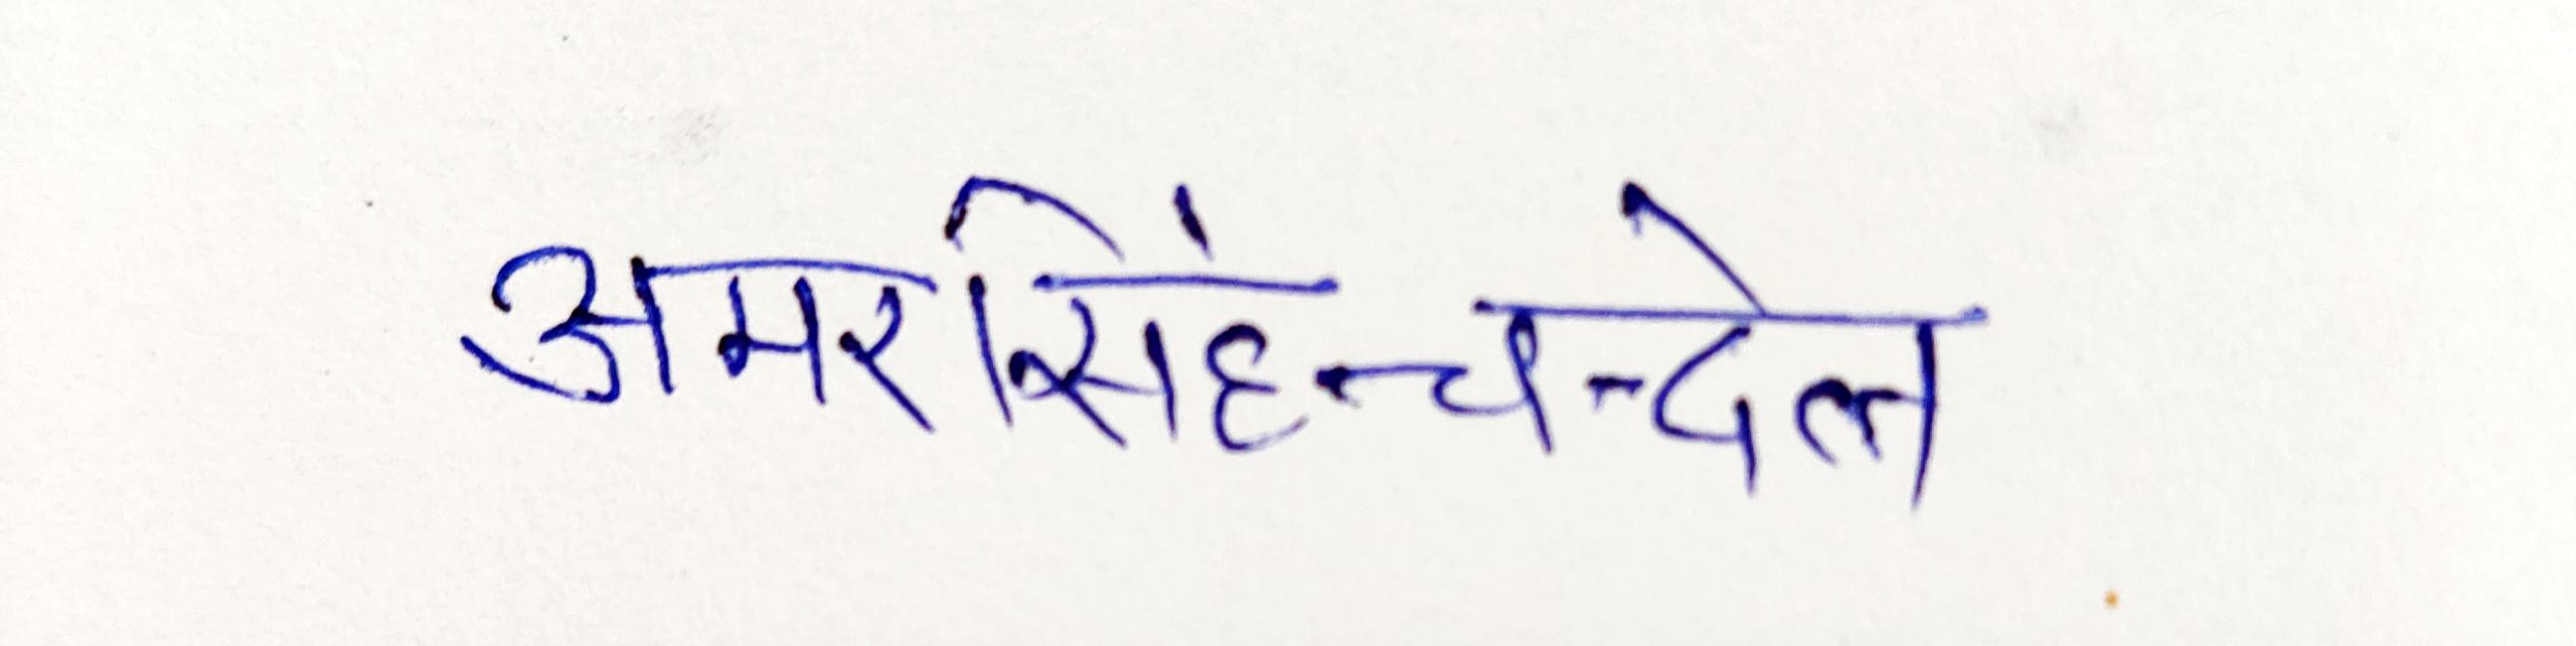 अमरसिंह चन्देल